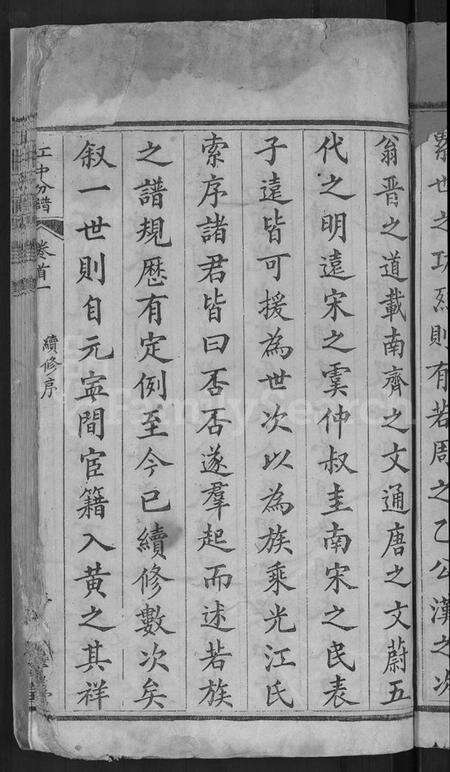 累世之功烈則有若周之乙公漢之次
翁晋之道載南齊之文通唐之文蔚五
代之明遠宋之虞仲叔圭南宋之民表
子遠皆可援為世次以為族乘光江氏
索序諸君皆曰否否遂羣起而述若族
之譜規歷有定例至今已續修數次矣
叙一世則自元寕間宦籍入黄之其祥
江中分譜
卷首一
續修序